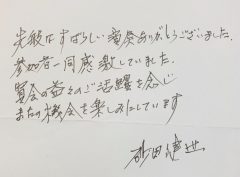 先般はすばらしい演奏ありがとうございました。
参加者一同感激していました。
宴会の益々のご活躍を念じ
またの機会を楽しみにしています
田